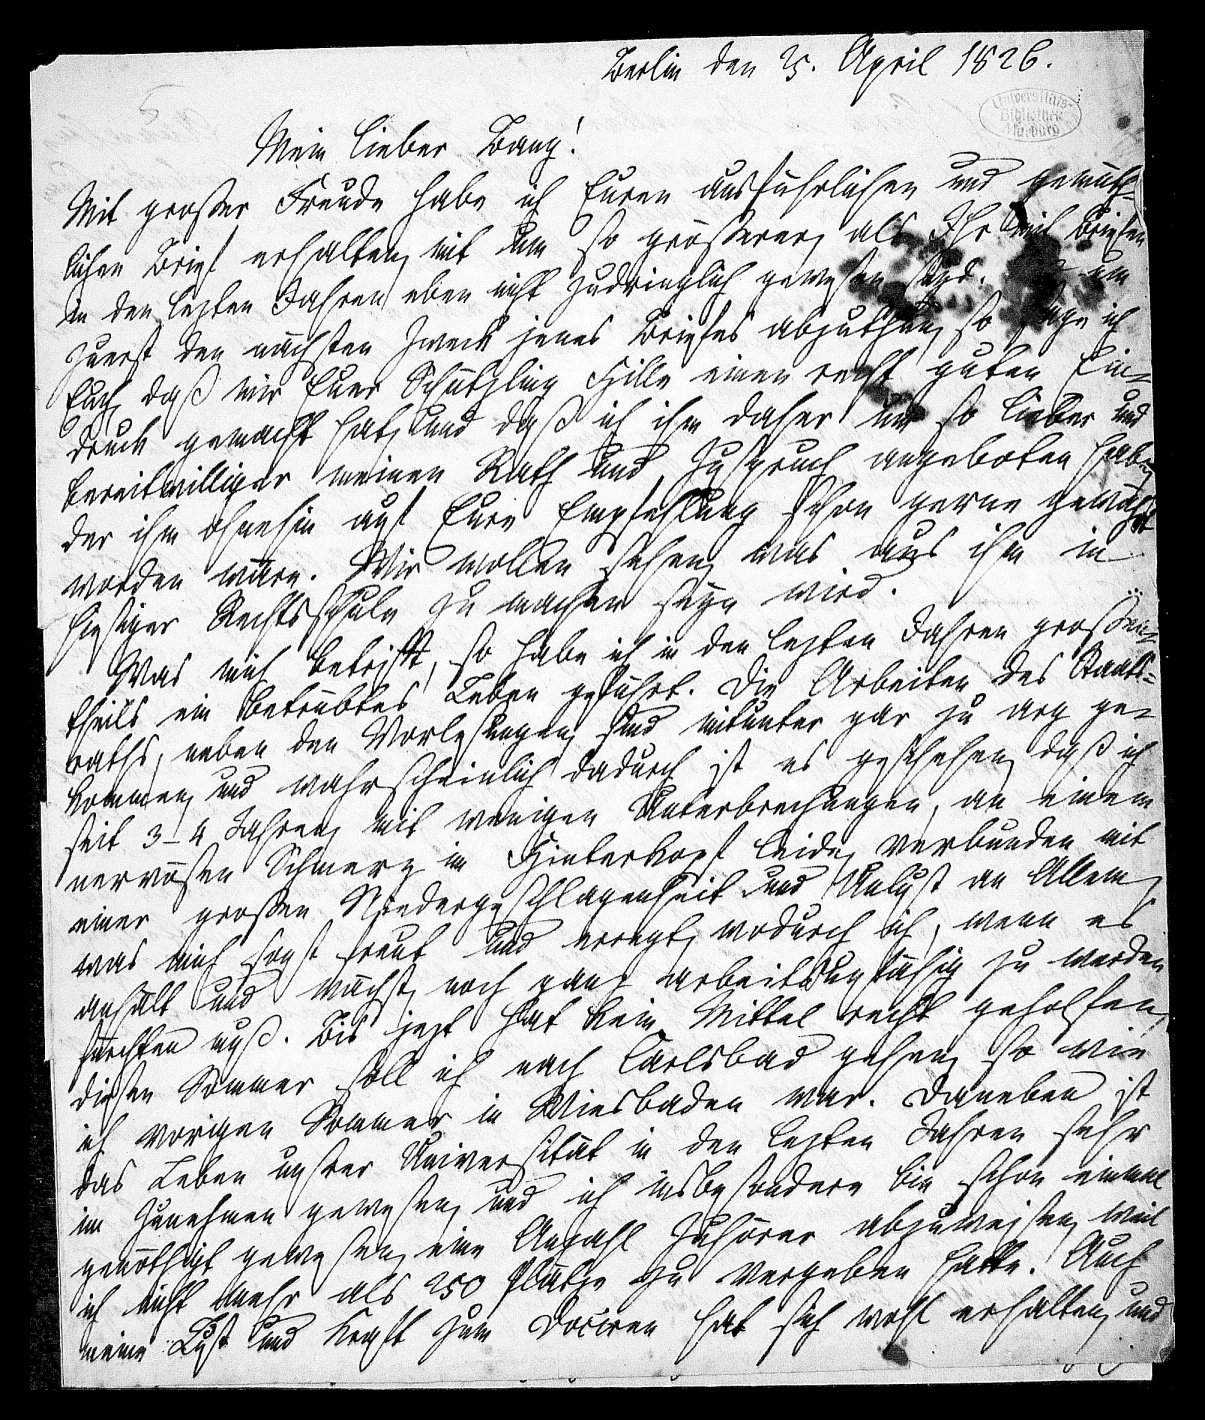 Berlin den 25. April 1826.
Universitäts-
Bibliothek
Marburg
Mein lieber Bang!
Mit großer Freude habe ich Euren ausführlichen und gemüth-
lichen Brief erhalten, mit um so größerer, als Ihr mit Briefen
in den lezten Jahren eben nicht zudringlich gewesen seyd. Um
zuerst den nächsten Zweck jenes Briefes abzuthun, so sage ich
Euch, daß mir Euer Schützling Hille einen recht guten Ein-
druck gemacht hat, und daß ich ihm daher um so lieber und
bereitwilliger meinen Rath und Zuspruch angeboten habe,
der ihm ohnehin auf Eure Empfehlung schon gerne gewährt
worden wäre. Wir wollen sehen, was aus ihm in
hiesiger Rechtsschule zu machen seyn wird.
Was mich betrifft, so habe ich in den lezten Jahren großen-
theils ein betrübtes Leben geführt. Die Arbeiten des Staats-
raths, neben den Vorlesungen, sind mitunter gar zu arg ge-
kommen, und wahrscheinlich dadurch ist es geschehen, daß ich
seit 3-4 Jahren, mit wenigen Unterbrechungen, an einem
nervösen Schmerz im Hinterkopf leide, verbunden mit
einer großen Niedergeschlagenheit und Unlust an Allem,
was mich sonst freut und erregt, wodurch ich, wenn es
anhält und wächst, noch ganz arbeitsunfähig zu werden
fürchten muß. Bis jezt hat kein Mittel recht geholfen,
diesen Sommer soll ich nach Carlsbad gehen, so wie
ich vorigen Sommer in Wiesbaden war. Daneben ist
das Leben unsrer Universität in den lezten Jahren sehr
im Zunehmen gewesen, und ich insbesondere bin schon einmal
genöthigt gewesen, eine Anzahl Zuhörer abzuweisen, weil
ich nicht mehr als 250 Plätze zu vergeben hatte. Auch
meine Lust und Kraft zum Dociren hat sich wohl erhalten, und